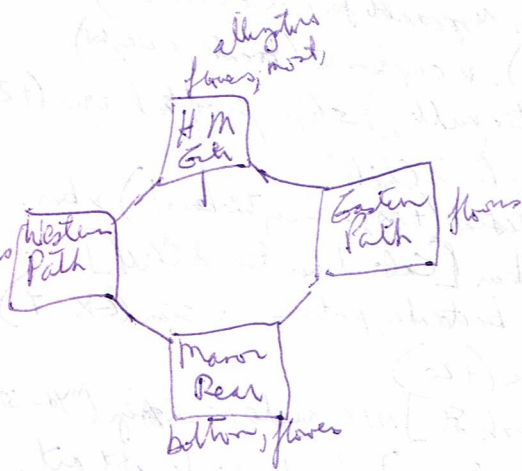 alligators
flowers, moat,
H M
Western
Path
Eastern
Path
flowers
Manor
Rear
bottom, flowers